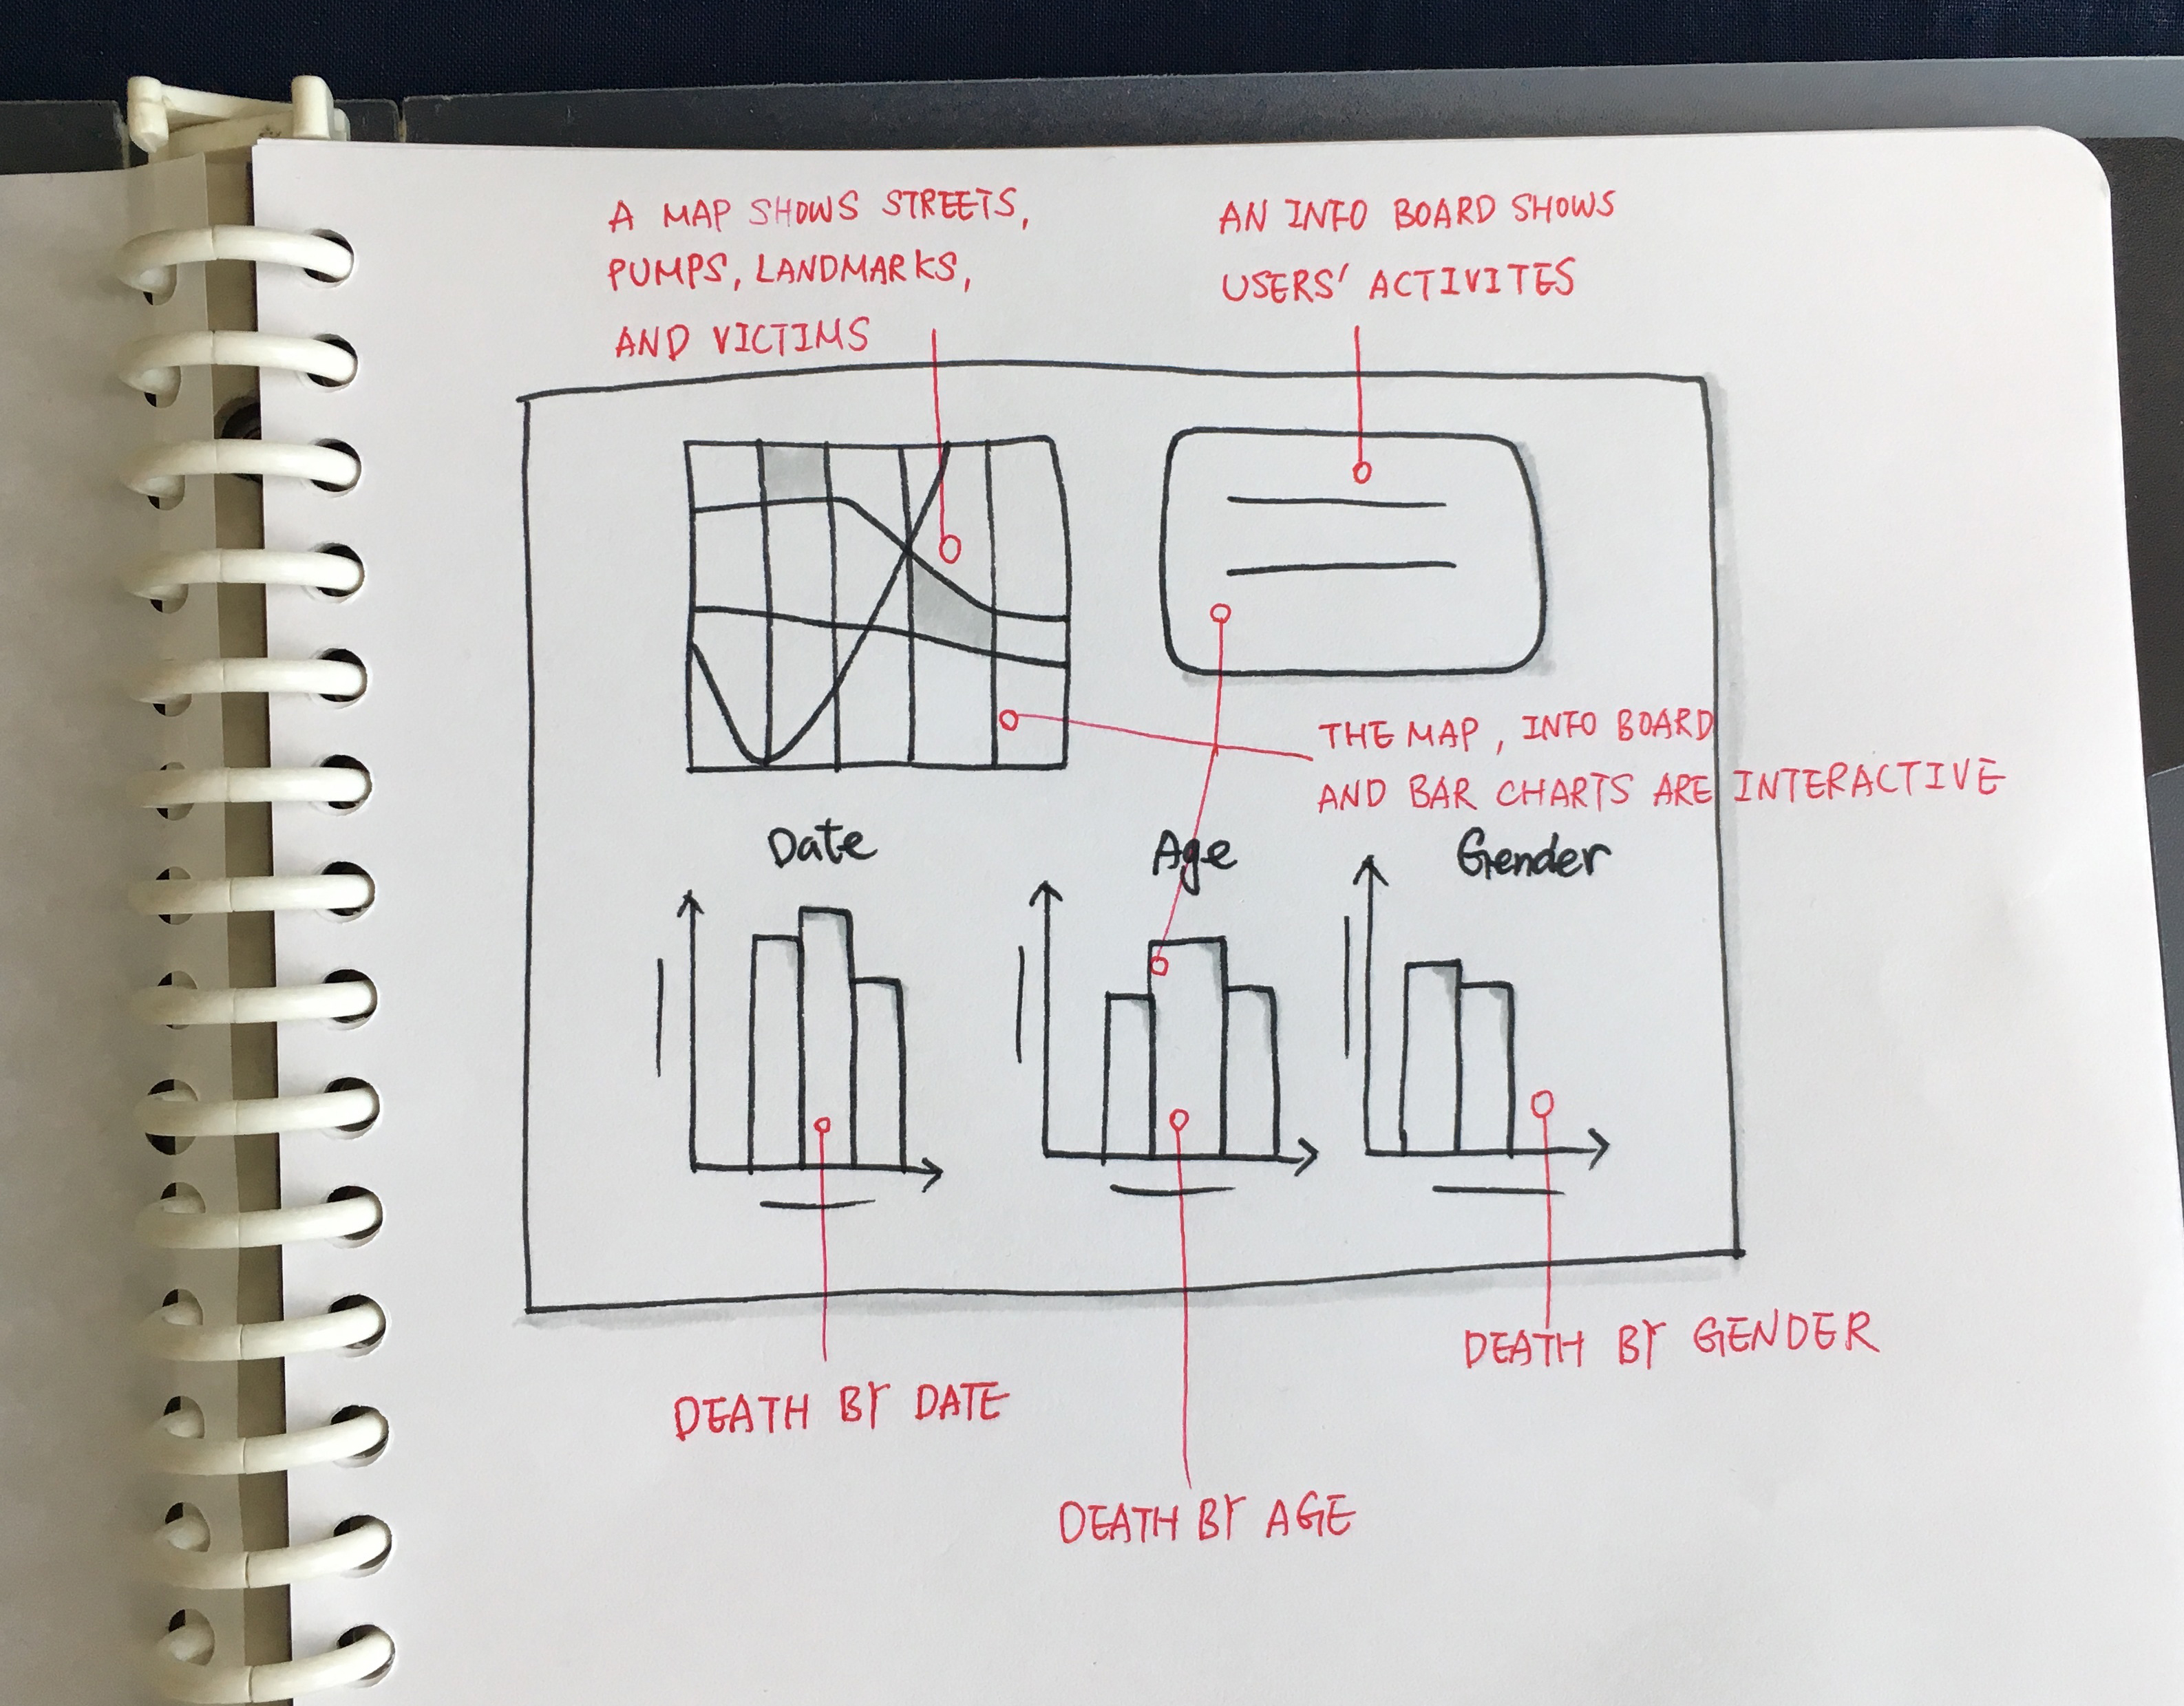 A MAP SHOWS STREETS,
PUMPS, LANDMARKS,
AND VICTIMS
AN INFO BOARD SHOWS
USERS' ACTIVITES
THE MAP, INFO BOARD
AND BAR CHARTS ARE INTERACTIVE
Date
Age
Gender
DEATH BY DATE
DEATH BY AGE
DEATH BY GENDER